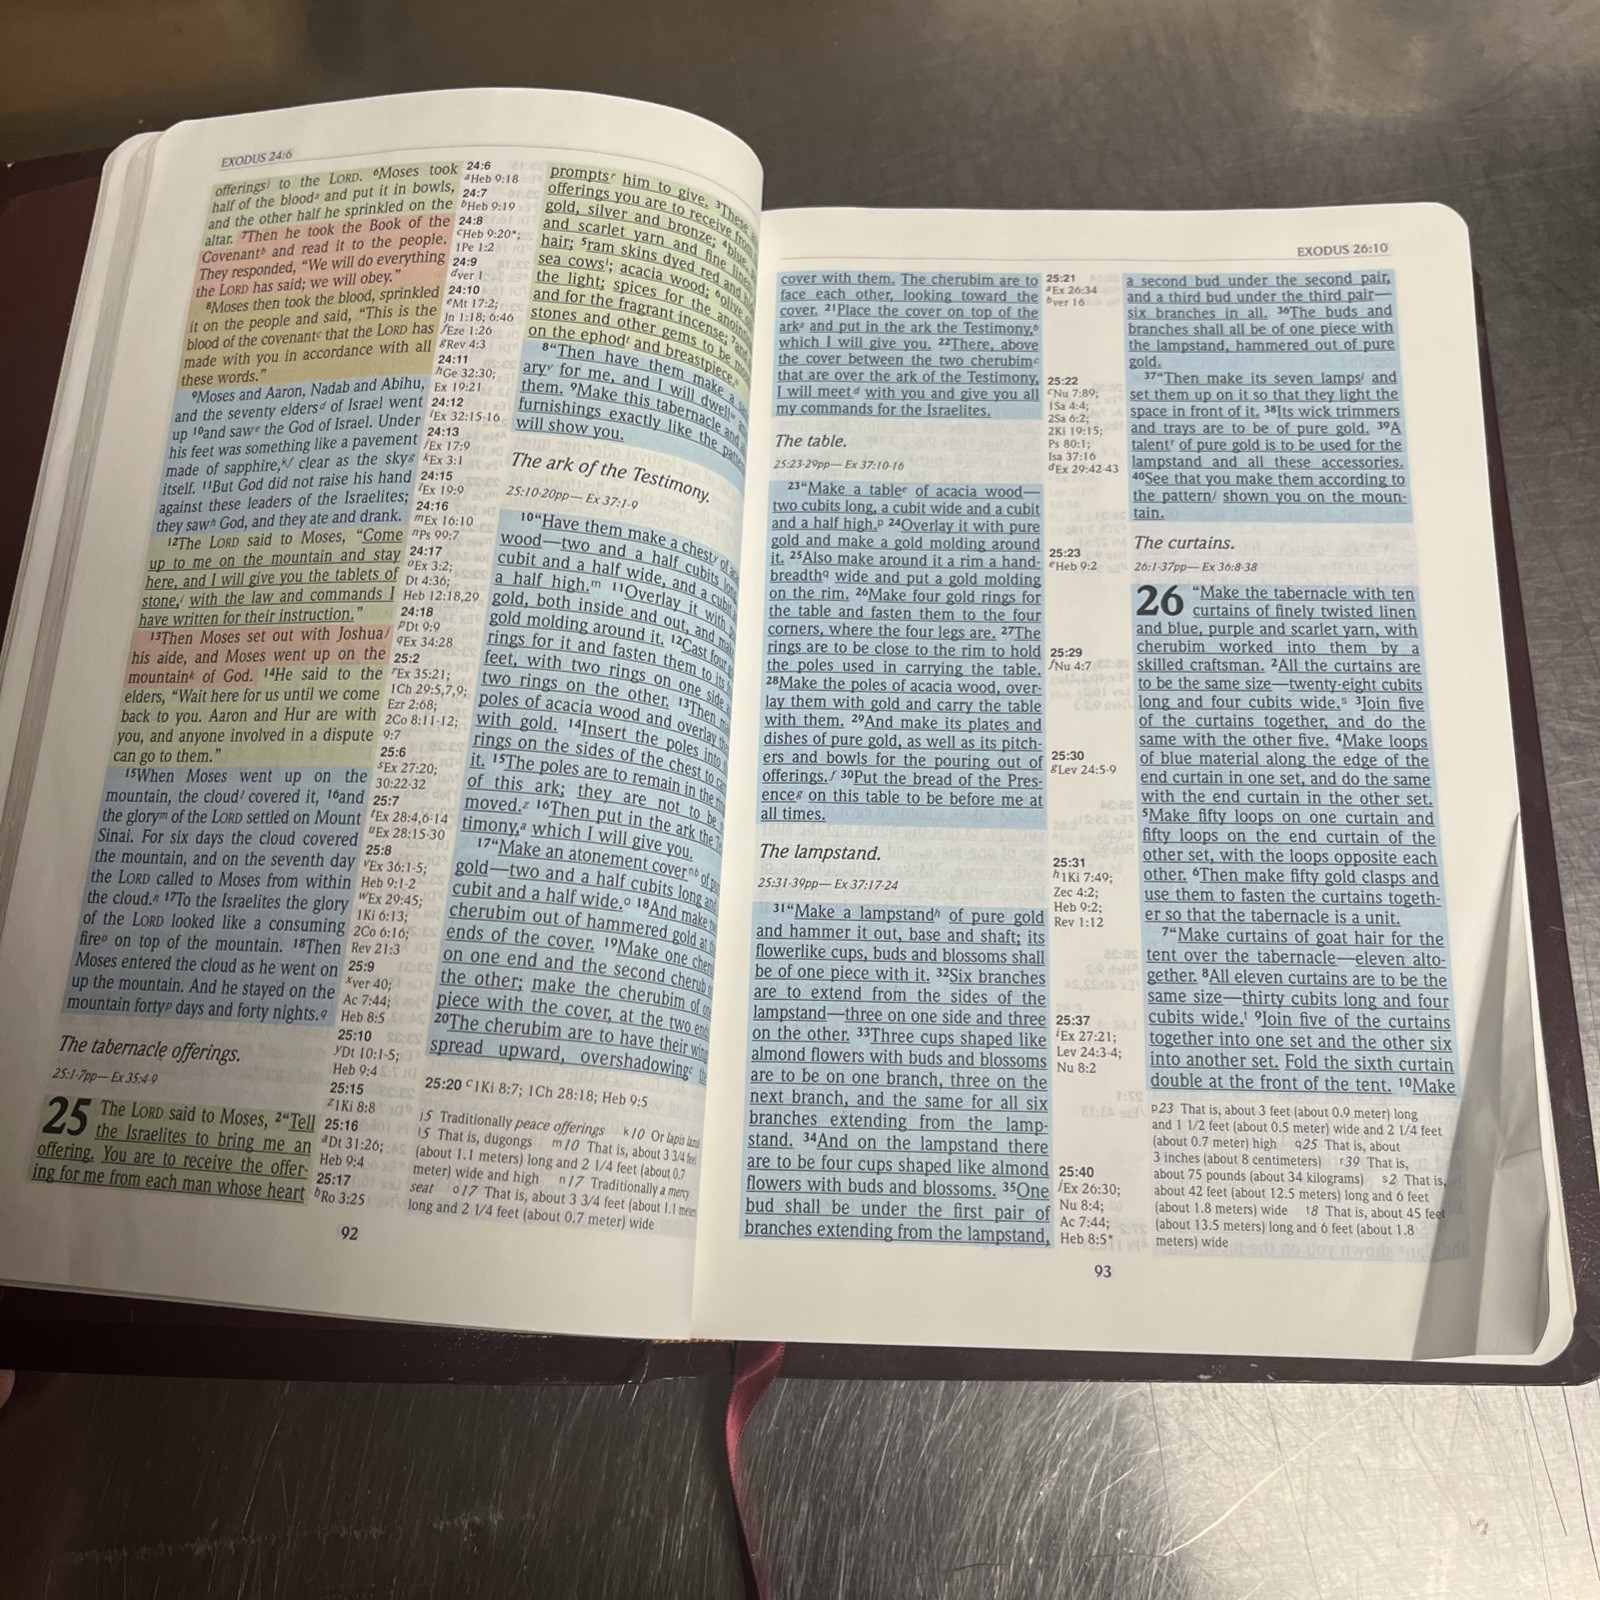 EXODUS 24:6
offerings to the LORD. 6Moses took
half of the blooda and put it in bowls,
and the other half he sprinkled on the
altar. 7Then he took the Book of the
Covenantb and read it to the people.
They responded, “We will do everything
the LORD has said; we will obey.”
8Moses then took the blood, sprinkled
it on the people and said, “This is the
blood of the covenantc that the LORD has
made with you in accordance with all
these words.”
9Moses and Aaron, Nadab and Abihu,
and the seventy eldersd of Israel went
up 10and sawe the God of Israel. Under
his feet was something like a pavement
made of sapphire,k f clear as the skyg
itself. 11But God did not raise his hand
against these leaders of the Israelites;
they sawh God, and they ate and drank.
12The LORD said to Moses, “Come
up to me on the mountain and stay
here, and I will give you the tablets of
stone,i with the law and commands I
have written for their instruction.”
13Then Moses set out with Joshuaj
his aide, and Moses went up on the
mountaink of God. 14He said to the
elders, “Wait here for us until we come
back to you. Aaron and Hur are with
you, and anyone involved in a dispute
can go to them.”
15When Moses went up on the
mountain, the cloudl covered it, 16and
the glorym of the LORD settled on Mount
Sinai. For six days the cloud covered
the mountain, and on the seventh day
the LORD called to Moses from within
the cloud.n 17To the Israelites the glory
of the LORD looked like a consuming
fireo on top of the mountain. 18Then
Moses entered the cloud as he went on
up the mountain. And he stayed on the
mountain fortyp days and forty nights.q
The tabernacle offerings.
25:1-7pp—Ex 35:4-9
25 The LORD said to Moses, 2“Tell
the Israelites to bring me an
offering. You are to receive the offer-
ing for me from each man whose heart
24:6
aHeb 9:18
24:7
bHeb 9:19
24:8
cHeb 9:20*;
1Pe 1:2
24:9
dver 1
24:10
eMt 17:2;
Jn 1:18; 6:46
fEze 1:26
gRev 4:3
24:11
hGe 32:30;
Ex 19:21
24:12
iEx 32:15-16
24:13
jEx 17:9
kEx 3:1
24:15
lEx 19:9
24:16
mEx 16:10
nPs 99:7
24:17
oEx 3:2;
Dt 4:36;
Heb 12:18,29
24:18
pDt 9:9
qEx 34:28
25:2
rEx 35:21;
1Ch 29:5,7,9;
Ezr 2:68;
2Co 8:11-12;
9:7
25:6
sEx 27:20;
30:22-32
25:7
tEx 28:4,6-14
uEx 28:15-30
25:8
vEx 36:1-5;
Heb 9:1-2
wEx 29:45;
1Ki 6:13;
2Co 6:16;
Rev 21:3
25:9
xver 40;
Ac 7:44;
Heb 8:5
25:10
yDt 10:1-5;
Heb 9:4
25:15
z1Ki 8:8
25:16
aDt 31:26;
Heb 9:4
25:17
bRo 3:25
promptsr him to give. 3These
offerings you are to receive from
gold, silver and bronze; 4blue,
and scarlet yarn and fine linen
hair; 5ram skins dyed red and
sea cowsl; acacia wood; 6olive
the light; spices for the
and for the fragrant incense; 7and
stones and other gems to be
on the ephodt and breastpiece.u
8“Then have them make a
aryv for me, and I will dwellw
them. 9Make this tabernacle and
furnishings exactly like the
will show you.
The ark of the Testimony.
25:10-20pp—Ex 37:1-9
10“Have them make a chesty of
wood—two and a half cubits
cubit and a half wide, and a cubit
a half high.m 11Overlay it with
gold, both inside and out, and make
gold molding around it. 12Cast four
rings for it and fasten them to its
feet, with two rings on one side
two rings on the other. 13Then
poles of acacia wood and overlay
with gold. 14Insert the poles into
rings on the sides of the chest to
it. 15The poles are to remain in the
of this ark; they are not to be
moved.z 16Then put in the ark the
timony,a which I will give you.
17“Make an atonement covernb of
gold—two and a half cubits long and
cubit and a half wide.o 18And make
cherubim out of hammered gold at
ends of the cover. 19Make one
on one end and the second cherub
the other; make the cherubim of
piece with the cover, at the two
20The cherubim are to have their
spread upward, overshadowingc
25:20 c1Ki 8:7; 1Ch 28:18; Heb 9:5
i5 Traditionally peace offerings k10 Or lapis
l5 That is, dugongs m10 That is, about 3 3/4 feet
(about 1.1 meters) long and 2 1/4 feet (about 0.7
meter) wide and high n17 Traditionally a mercy
seat o17 That is, about 3 3/4 feet (about 1.1
long and 2 1/4 feet (about 0.7 meter) wide
92
EXODUS 26:10
cover with them. The cherubim are to
face each other, looking toward the
cover. 21Place the cover on top of the
arka and put in the ark the Testimony,b
which I will give you. 22There, above
the cover between the two cherubimc
that are over the ark of the Testimony,
I will meetd with you and give you all
my commands for the Israelites.
The table.
25:23-29pp—Ex 37:10-16
23“Make a tablee of acacia wood—
two cubits long, a cubit wide and a cubit
and a half high.p 24Overlay it with pure
gold and make a gold molding around
it. 25Also make around it a rim a hand-
breadthq wide and put a gold molding
on the rim. 26Make four gold rings for
the table and fasten them to the four
corners, where the four legs are. 27The
rings are to be close to the rim to hold
the poles used in carrying the table.
28Make the poles of acacia wood, over-
lay them with gold and carry the table
with them. 29And make its plates and
dishes of pure gold, as well as its pitch-
ers and bowls for the pouring out of
offerings.f 30Put the bread of the Pres-
enceg on this table to be before me at
all times.
The lampstand.
25:31-39pp—Ex 37:17-24
31“Make a lampstandh of pure gold
and hammer it out, base and shaft; its
flowerlike cups, buds and blossoms shall
be of one piece with it. 32Six branches
are to extend from the sides of the
lampstand—three on one side and three
on the other. 33Three cups shaped like
almond flowers with buds and blossoms
are to be on one branch, three on the
next branch, and the same for all six
branches extending from the lamp-
stand. 34And on the lampstand there
are to be four cups shaped like almond
flowers with buds and blossoms. 35One
bud shall be under the first pair of
branches extending from the lampstand,
25:21
aEx 26:34
bver 16
25:22
cNu 7:89;
1Sa 4:4;
2Sa 6:2;
2Ki 19:15;
Ps 80:1;
Isa 37:16
dEx 29:42-43
25:23
eHeb 9:2
25:29
fNu 4:7
25:30
gLev 24:5-9
25:31
h1Ki 7:49;
Zec 4:2;
Heb 9:2;
Rev 1:12
25:37
iEx 27:21;
Lev 24:3-4;
Nu 8:2
25:40
jEx 26:30;
Nu 8:4;
Ac 7:44;
Heb 8:5*
a second bud under the second pair,
and a third bud under the third pair—
six branches in all. 36The buds and
branches shall all be of one piece with
the lampstand, hammered out of pure
gold.
37“Then make its seven lampsi and
set them up on it so that they light the
space in front of it. 38Its wick trimmers
and trays are to be of pure gold. 39A
talentr of pure gold is to be used for the
lampstand and all these accessories.
40See that you make them according to
the patternj shown you on the moun-
tain.
The curtains.
26:1-37pp—Ex 36:8-38
26 “Make the tabernacle with ten
curtains of finely twisted linen
and blue, purple and scarlet yarn, with
cherubim worked into them by a
skilled craftsman. 2All the curtains are
to be the same size—twenty-eight cubits
long and four cubits wide.s 3Join five
of the curtains together, and do the
same with the other five. 4Make loops
of blue material along the edge of the
end curtain in one set, and do the same
with the end curtain in the other set.
5Make fifty loops on one curtain and
fifty loops on the end curtain of the
other set, with the loops opposite each
other. 6Then make fifty gold clasps and
use them to fasten the curtains togeth-
er so that the tabernacle is a unit.
7“Make curtains of goat hair for the
tent over the tabernacle—eleven alto-
gether. 8All eleven curtains are to be the
same size—thirty cubits long and four
cubits wide.t 9Join five of the curtains
together into one set and the other six
into another set. Fold the sixth curtain
double at the front of the tent. 10Make
p23 That is, about 3 feet (about 0.9 meter) long
and 1 1/2 feet (about 0.5 meter) wide and 2 1/4 feet
(about 0.7 meter) high q25 That is, about
3 inches (about 8 centimeters) r39 That is,
about 75 pounds (about 34 kilograms) s2 That is,
about 42 feet (about 12.5 meters) long and 6 feet
(about 1.8 meters) wide t8 That is, about 45 feet
(about 13.5 meters) long and 6 feet (about 1.8
meters) wide
93